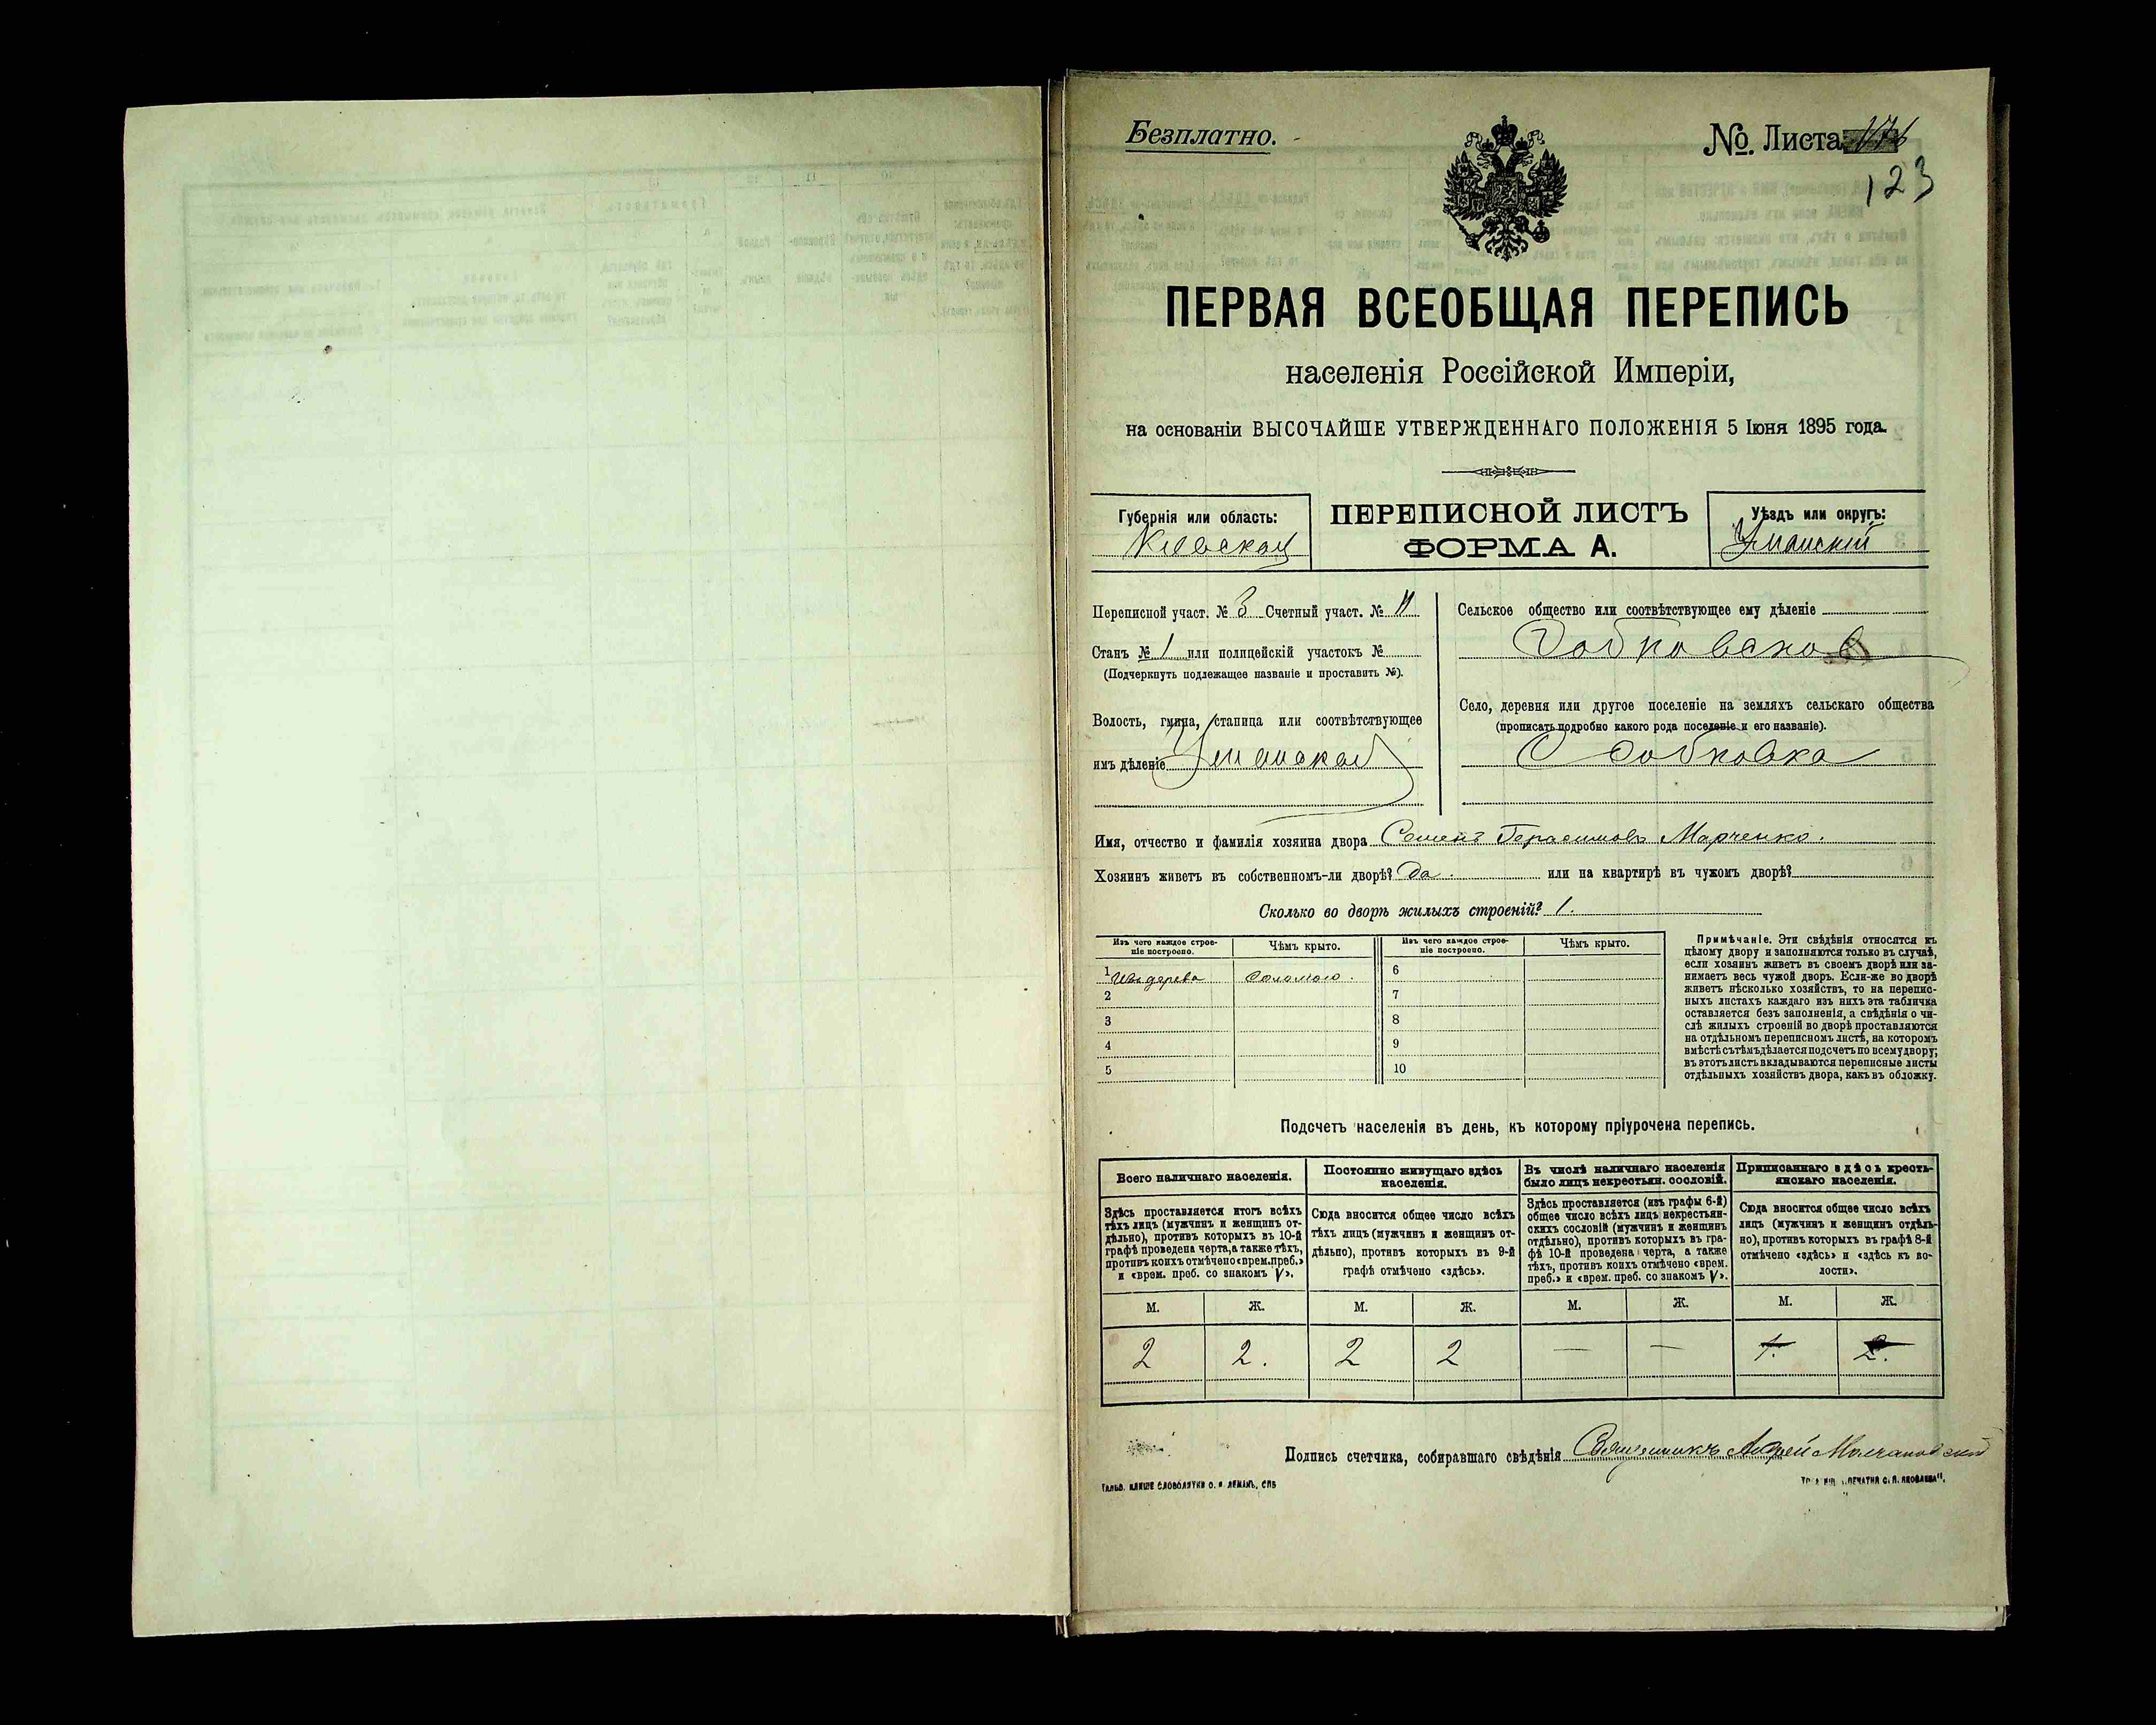 Безплатно.
№ Листа
123
ПЕРВАЯ ВСЕОБЩАЯ ПЕРЕПИСЬ
населенія Россійской Имперіи,
на основаніи ВЫСОЧАЙШЕ УТВЕРЖДЕННАГО ПОЛОЖЕНІЯ 5 Іюня 1895 года.
Губернія или область:
Кіевская
ПЕРЕПИСНОЙ ЛИСТЪ
ФОРМА А.
Уѣздъ или округъ:
Уманскій
Переписной участ. № 3 Счетный участ. № 11
Станъ № 1 или полицейскій участокъ №
(Подчеркнуть подлежащее названіе и проставить №).
Волость, гмина, станица или соотвѣтствующее
имъ дѣленіе Уманская
Сельское общество или соотвѣтствующее ему дѣленіе
Собковское
Село, деревня или другое поселеніе на земляхъ сельскаго общества
(прописать подробно какого рода поселеніе и его названіе).
С Собковка
Имя, отчество и фамилія хозяина двора Семенъ Герасимовъ Марченко.
Хозяинъ живетъ въ собственномъ-ли дворѣ? Да. или на квартирѣ въ чужомъ дворѣ?
Сколько во дворѣ жилыхъ строеній? 1.
Изъ чего каждое строе-
ніе построено.
Чѣмъ крыто.
Изъ чего каждое строе-
ніе построено.
Чѣмъ крыто.
1 Изъ дерева соломою. 6
2 7
3 8
4 9
5 10
Примѣчаніе. Эти свѣдѣнія относятся къ
цѣлому двору и заполняются только въ случаѣ,
если хозяинъ живетъ въ своемъ дворѣ или за-
нимаетъ весь чужой дворъ. Если-же во дворѣ
живетъ нѣсколько хозяйствъ, то на перепис-
ныхъ листахъ каждаго изъ нихъ эта табличка
оставляется безъ заполненія, а свѣдѣнія о чи-
слѣ жилыхъ строеній во дворѣ проставляются
на отдѣльномъ переписномъ листѣ, на которомъ
вмѣстѣ съ тѣмъ дѣлается подсчетъ по всему двору;
въ этотъ листъ вкладываются переписные листы
отдѣльныхъ хозяйствъ двора, какъ въ обложку.
Подсчетъ населенія въ день, къ которому пріурочена перепись.
Всего наличнаго населенія.
Здѣсь проставляется итогъ всѣхъ
тѣхъ лицъ (мужчинъ и женщинъ от-
дѣльно), противъ которыхъ въ 10-й
графѣ проведена черта, а также тѣхъ,
противъ коихъ отмѣчено «врем. преб.»
и «врем. преб. со знакомъ V».
Постоянно живущаго здѣсь
населенія.
Сюда вносится общее число всѣхъ
тѣхъ лицъ (мужчинъ и женщинъ от-
дѣльно), противъ которыхъ въ 9-й
графѣ отмѣчено «здѣсь».
Въ числѣ наличнаго населенія
было лицъ некрестьян. сословій.
Здѣсь проставляется (изъ графы 6-й)
общее число всѣхъ лицъ некрестьян-
скихъ сословій (мужчинъ и женщинъ
отдѣльно), противъ которыхъ въ гра-
фѣ 10-й проведена черта, а также
тѣхъ, противъ коихъ отмѣчено «врем.
преб.» и «врем. преб. со знакомъ V».
Приписаннаго здѣсь кресть-
янскаго населенія.
Сюда вносится общее число всѣхъ
лицъ (мужчинъ и женщинъ отдѣль-
но), противъ которыхъ въ графѣ 8-й
отмѣчено «здѣсь» и «здѣсь къ во-
лости».
М. Ж. М. Ж. М. Ж. М. Ж.
2 2. 2 2 — — 1. 2.
Подпись счетчика, собиравшаго свѣдѣнія Священникъ Андрей Молчановскій